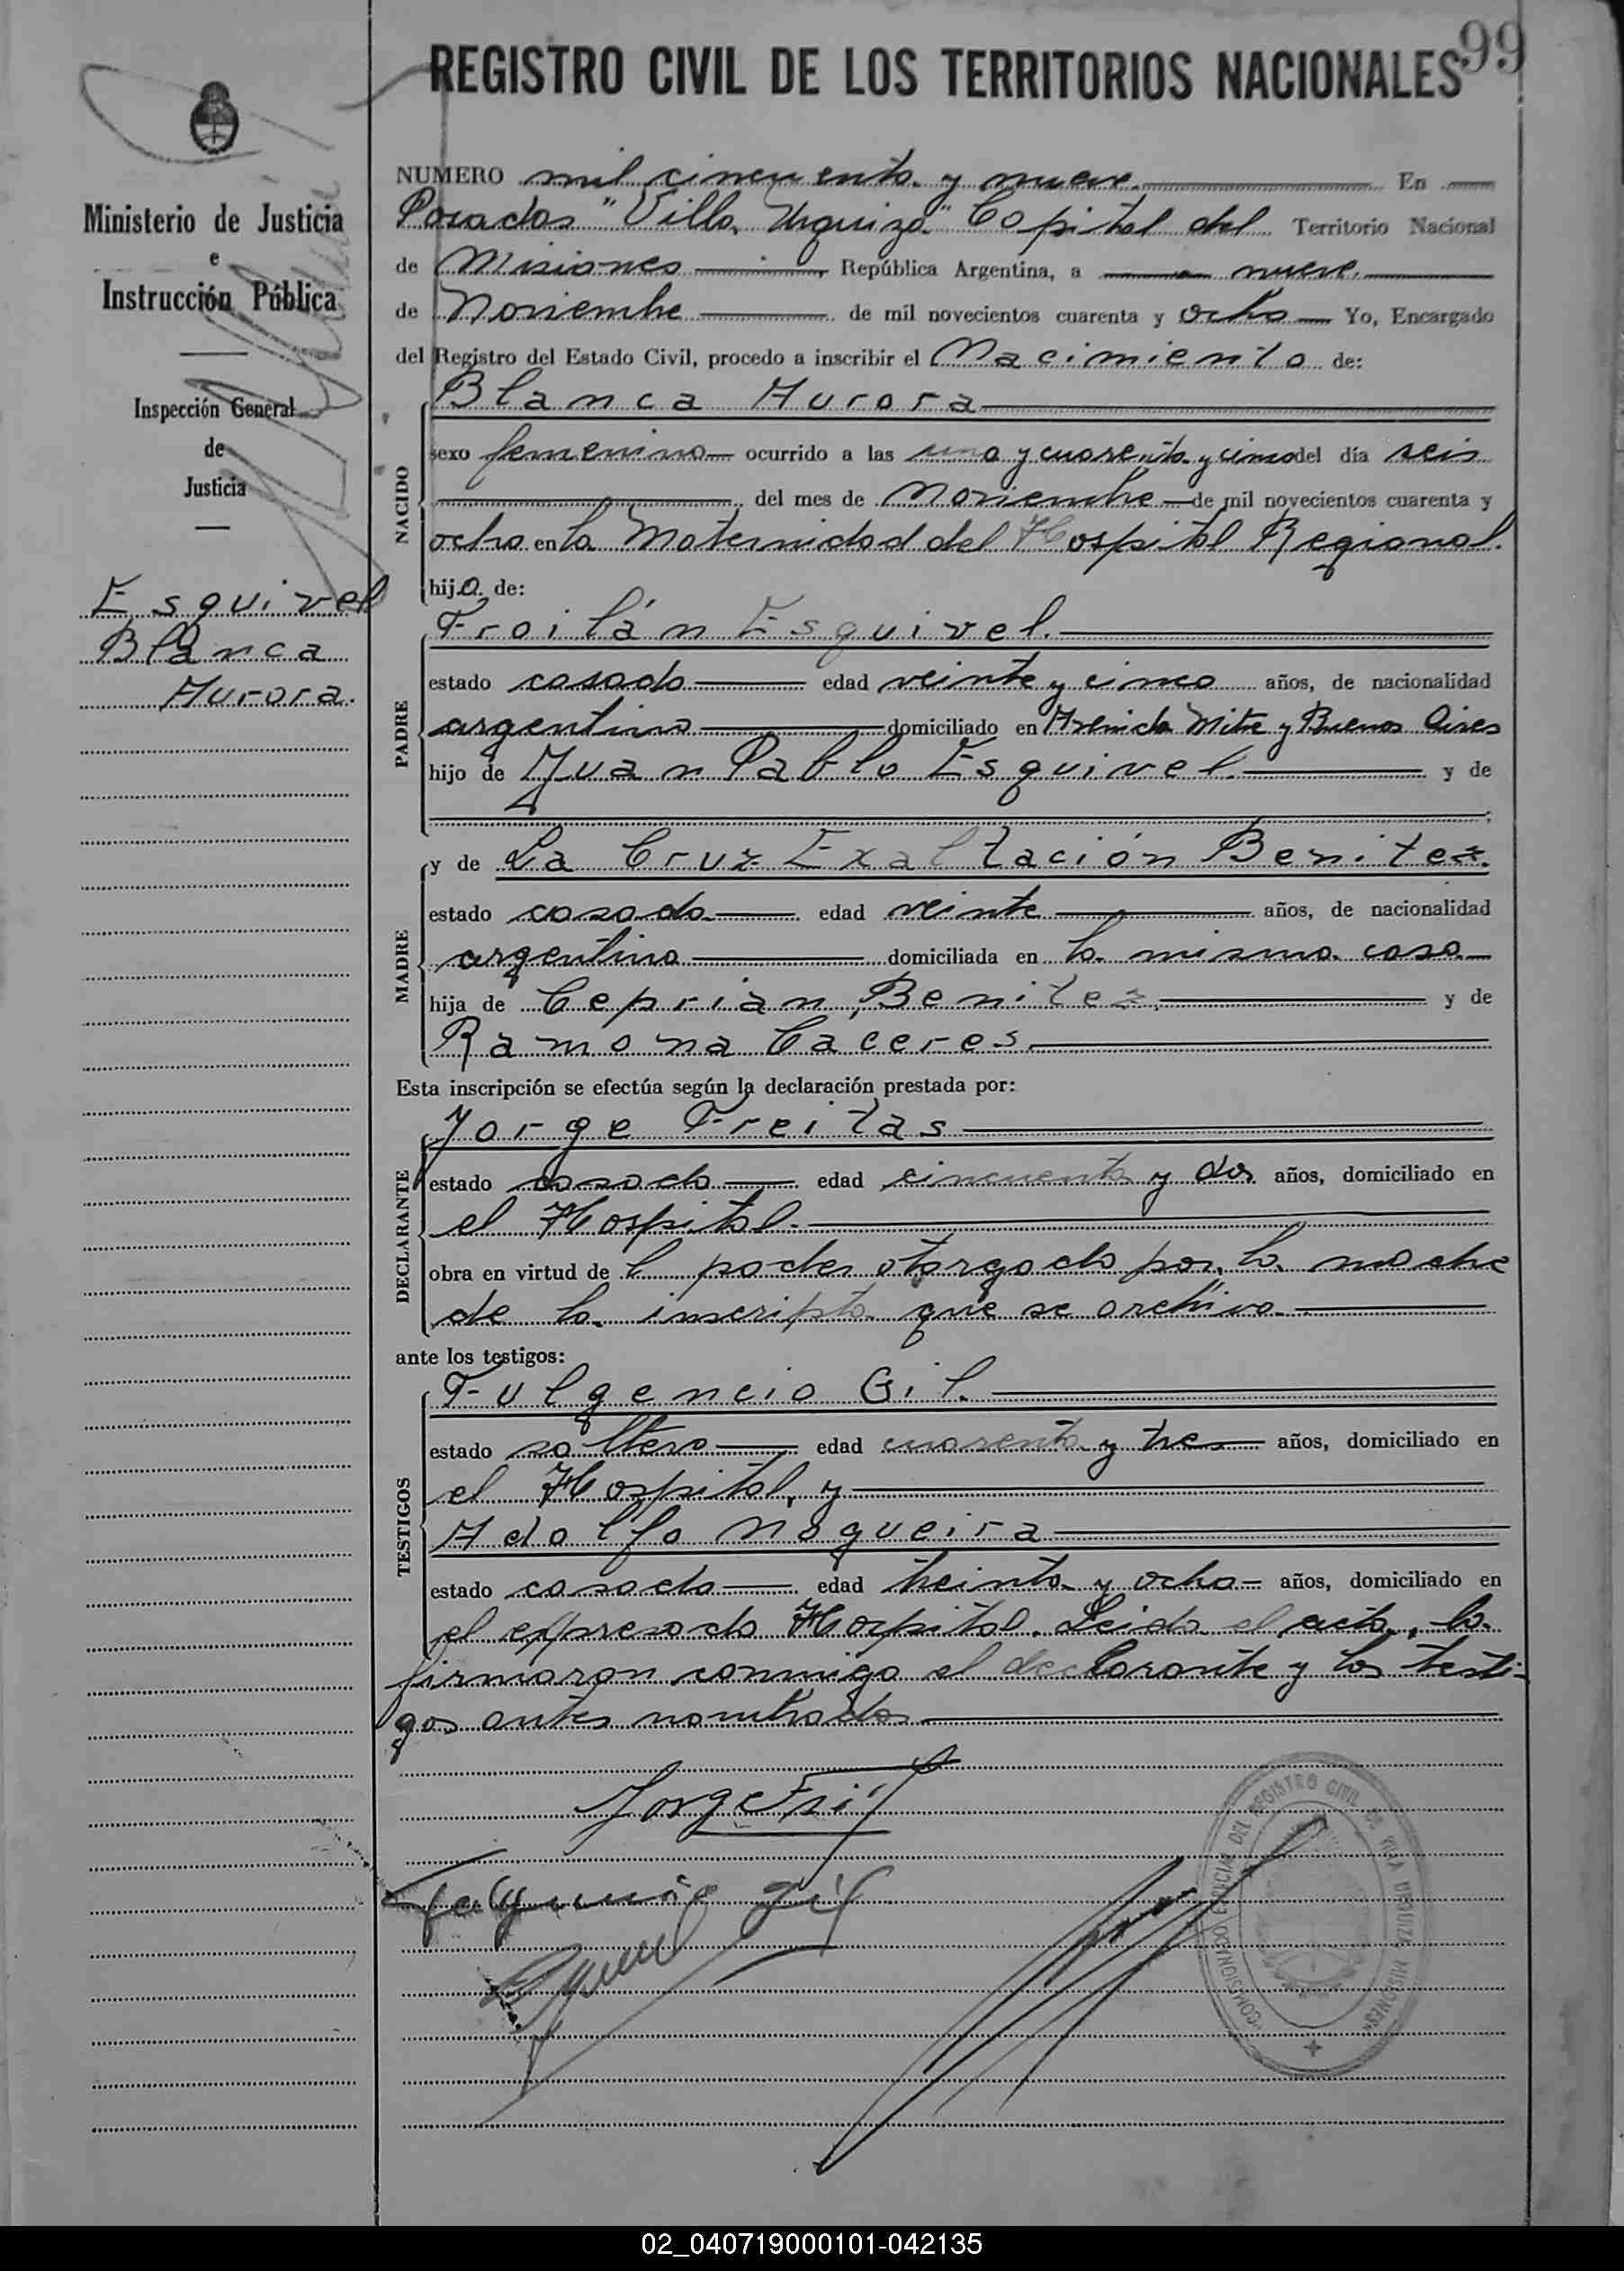 99
REGISTRO CIVIL DE LOS TERRITORIOS NACIONALES
Ministerio de Justicia
e
Instrucción Pública
Inspección General
de
Justicia
Esquivel
Blanca
Aurora.
NUMERO mil cincuenta y nueve. En
Posadas "Villa Urquiza" Capital del Territorio Nacional
de Misiones, República Argentina, a nueve
de Noviembre de mil novecientos cuarenta y ocho Yo, Encargado
del Registro del Estado Civil, procedo a inscribir el Nacimiento de:
NACIDO
Blanca Aurora
sexo femenino ocurrido a las una y cuarenta y cinco del día seis
del mes de Noviembre de mil novecientos cuarenta y
ocho en la Maternidad del Hospital Regional.
hija de:
PADRE
Froilán Esquivel.
estado casado edad veinte y cinco años, de nacionalidad
argentina domiciliado en Avenida Mitre y Buenos Aires
hijo de Juan Pablo Esquivel. y de
MADRE
y de La Cruz Exaltación Benitez.
estado casada edad veinte años, de nacionalidad
argentina domiciliada en la misma casa
hija de Ceprian Benitez, y de
Ramona Caceres.
Esta inscripción se efectúa según la declaración prestada por:
DECLARANTE
Jorge Freitas
estado casado edad cincuenta y dos años, domiciliado en
el Hospital.
obra en virtud de l poder otorgado por la madre
de la inscripta que se archiva.
ante los testigos:
TESTIGOS
Fulgencio Gil.
estado soltero edad cuarenta y tres años, domiciliado en
el Hospital, y
Adolfo Nogueira
estado casado edad treinta y ocho años, domiciliado en
el expresado Hospital. Leida el acta, la
firmaron conmigo el declarante y los testi-
gos antes nombrados
Gil
COMISIONADO DEL REGISTRO CIVIL DE VILLA URQUIZA MISIONES
02_040719000101-042135